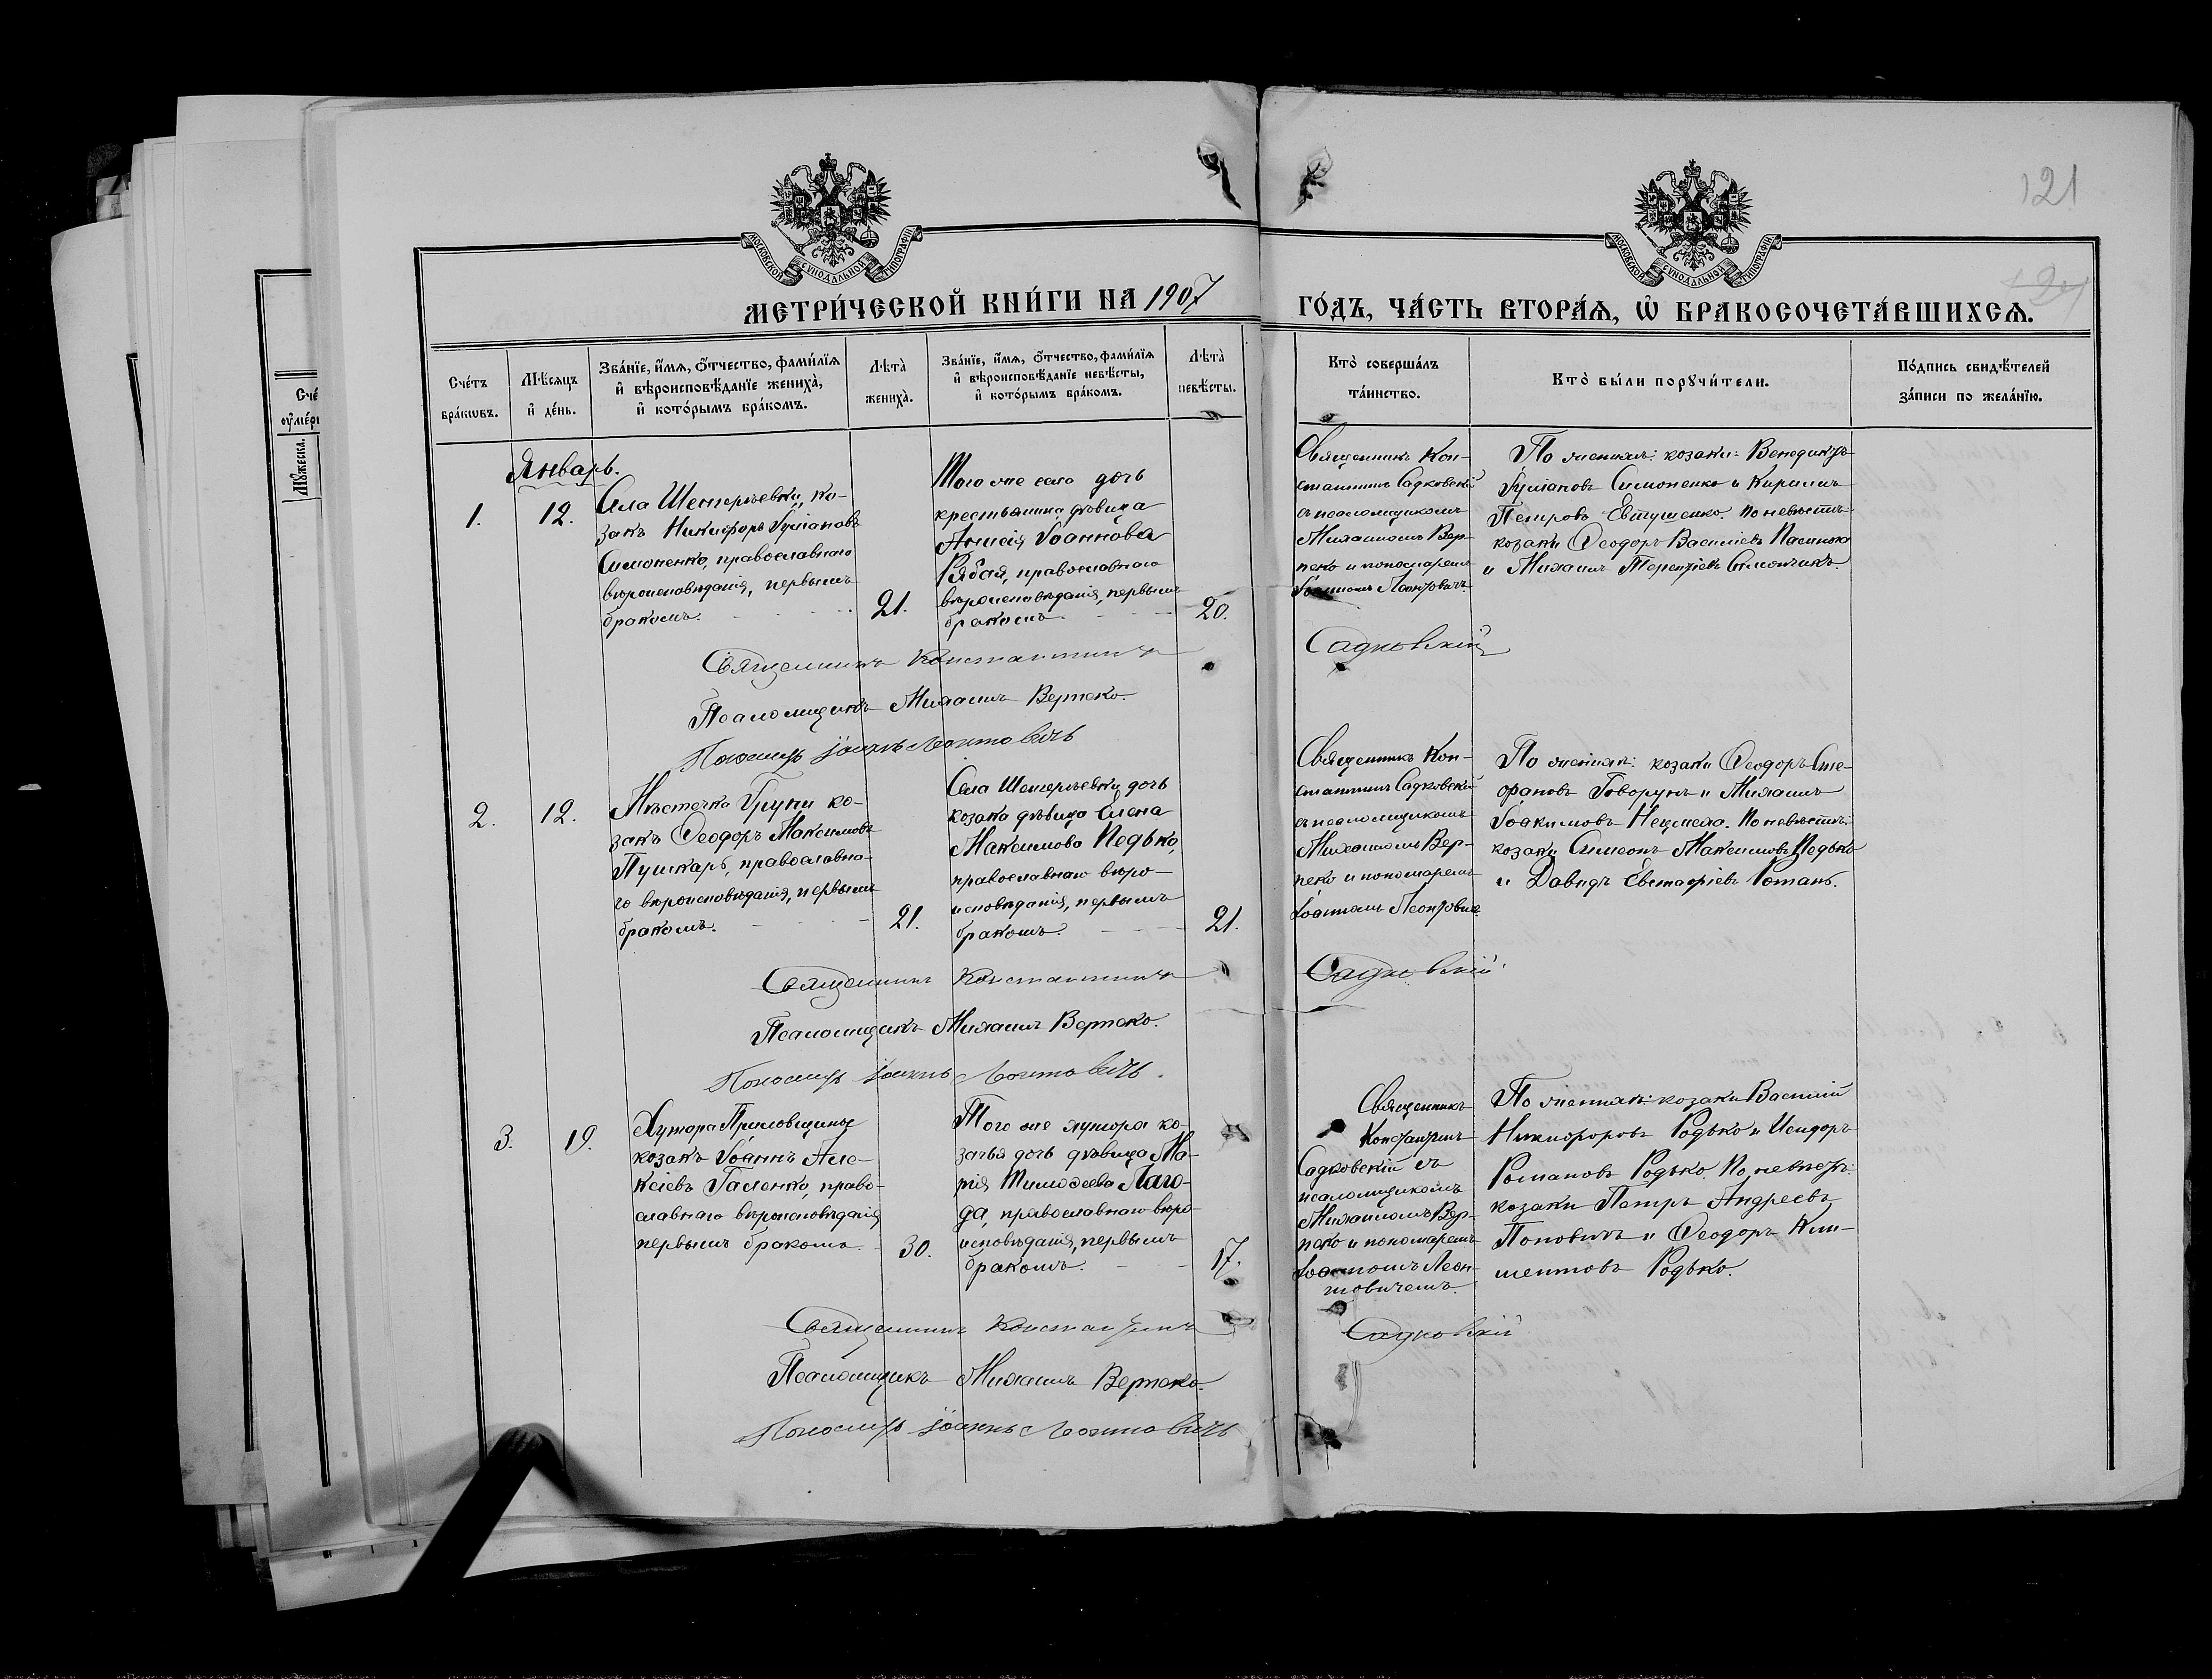 121
МОСКОВСКОЙ СѴНОДАЛЬНОЙ ТИПОГРАФІИ
МОСКОВСКОЙ СѴНОДАЛЬНОЙ ТИПОГРАФІИ
МЕТРИ́ЧЕСКОЙ КНИ́ГИ НА 1907
ГО́ДЪ, ЧА́СТЬ ВТОРА́Ѧ, Ѡ҆ БРАКОСОЧЕТА́ВШИХСѦ.
Сче́тъ
бра́кѡвъ.
Мѣ́сѧцъ
и҆ де́нь.
Зва́нїе, и҆́мѧ, ѻ҆́тчество, фами́лїѧ
и҆ вѣроисповѣ́данїе жениха̀,
и҆ кото́рымъ бра́комъ.
Лѣ́та̀
жениха̀.
Зва́нїе, и҆́мѧ, ѻ҆́тчество, фами́лїѧ
и҆ вѣроисповѣ́данїе невѣ́сты,
и҆ кото́рымъ бра́комъ.
Лѣ́та̀
невѣ́сты.
Кто̀ соверша́лъ
та́инство.
Кто̀ бы́ли порꙋчи́тели.
По́дпись свидѣ́телей
за́писи по жела́нїю.
Сче́
ᲂу҆ме́р
Мꙋ́жеска.
Январь.
1.
12.
Села Шенгерѣевки, ко-
закъ Никифоръ Іуліановъ
Симоненко, православнаго
вѣроисповѣданія, первымъ
бракомъ.
21.
Того же села дочь
крестьянина дѣвица
Анисія Іоаннова
Рябая, православнаго
вѣроисповѣданія, первымъ
бракомъ
20.
Священникъ Кон-
стантинъ Садковскій
съ псаломщикомъ
Михаиломъ Вер-
пеко и пономаремъ
Іоанномъ Леонтовичъ.
По женихѣ: козаки: Венедиктъ
Іуліановъ Симоненко и Кириллъ
Петровъ Евтушенко. По невѣстѣ
козаки Ѳеодоръ Василіевъ Пасмока
и Михаилъ Терентіевъ Симончикъ.
Священникъ Константинъ
Садковскій
Псаломщикъ Михаилъ Верпеко.
Пономарь Іоаннъ Леонтовичъ
2.
12.
Мѣстечка Груни ко-
закъ Ѳеодоръ Максимовъ
Пушкарь, православна-
го вѣроисповѣданія, первымъ
бракомъ.
21.
Села Шенгерѣевки дочь
козака дѣвица Елена
Максимова Педько,
православнаго вѣро-
исповѣданія, первымъ
бракомъ.
21.
Священникъ Кон-
стантинъ Садковскій
съ псаломщикомъ
Михаиломъ Вер-
пеко и пономаремъ
Іоанномъ Леонтовичъ
По женихѣ: козаки Ѳеодоръ Сте-
фановъ Говорунъ и Михаилъ
Іоакимовъ По невѣстѣ:
козаки Симеонъ Максимовъ Педько
и Давидъ Евстафіевъ Ротань.
Священникъ Константинъ
Садковскій
Псаломщикъ Михаилъ Верпеко.
Пономарь Іоаннъ Леонтовичъ.
3.
19.
Хутора
козакъ Іоаннъ Але-
ксіевъ Галенко, право-
славнаго вѣроисповѣданія
первымъ бракомъ.
30.
Того же хутора ко-
зачья дочь дѣвица Ма-
рія Тимоѳеева Лаго-
да, православнаго вѣро-
исповѣданія, первымъ
бракомъ.
17.
Священникъ
Константинъ
Садковскій съ
псаломщикомъ
Михаиломъ Вер-
пеко и пономаремъ
Іоанномъ Леон-
товичемъ.
По женихѣ: козаки Василій
Никифоровъ Родько и Исидоръ
Романовъ Родько. По невѣстѣ:
козаки Петръ Андреевъ
Поповичъ и Ѳеодоръ Кли-
ментовъ Родько.
Священникъ Константинъ
Садковскій
Псаломщикъ Михаилъ Верпеко.
Пономарь Іоаннъ Леонтовичъ